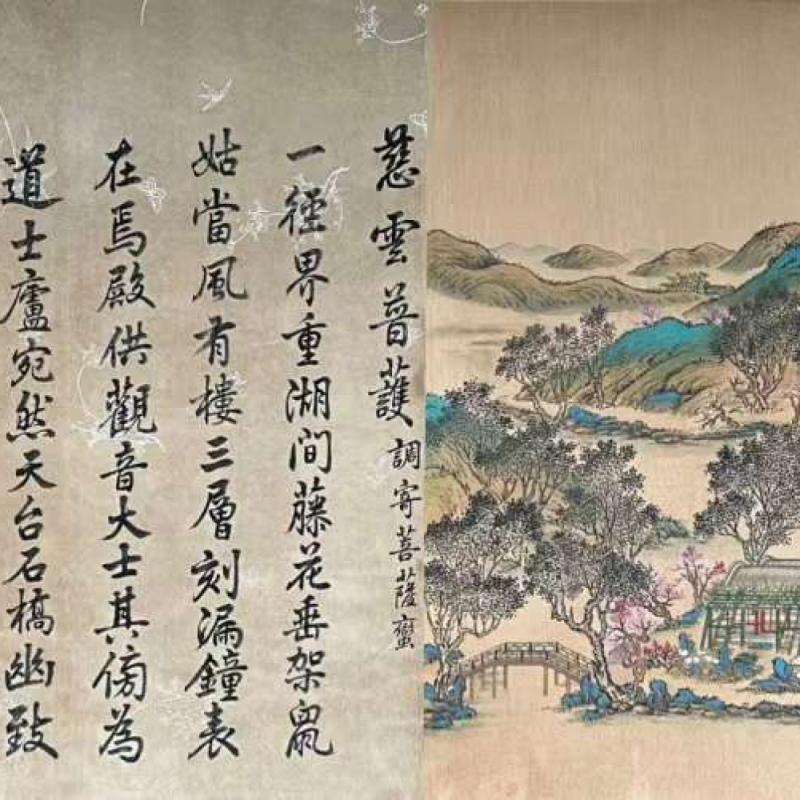 慈雲普護 調寄菩薩蠻
一徑界重湖間藤花垂架鼠
姑當風有樓三層刻漏鐘表
在焉殿供觀音大士其傍為
道士廬宛然天台石橋幽致